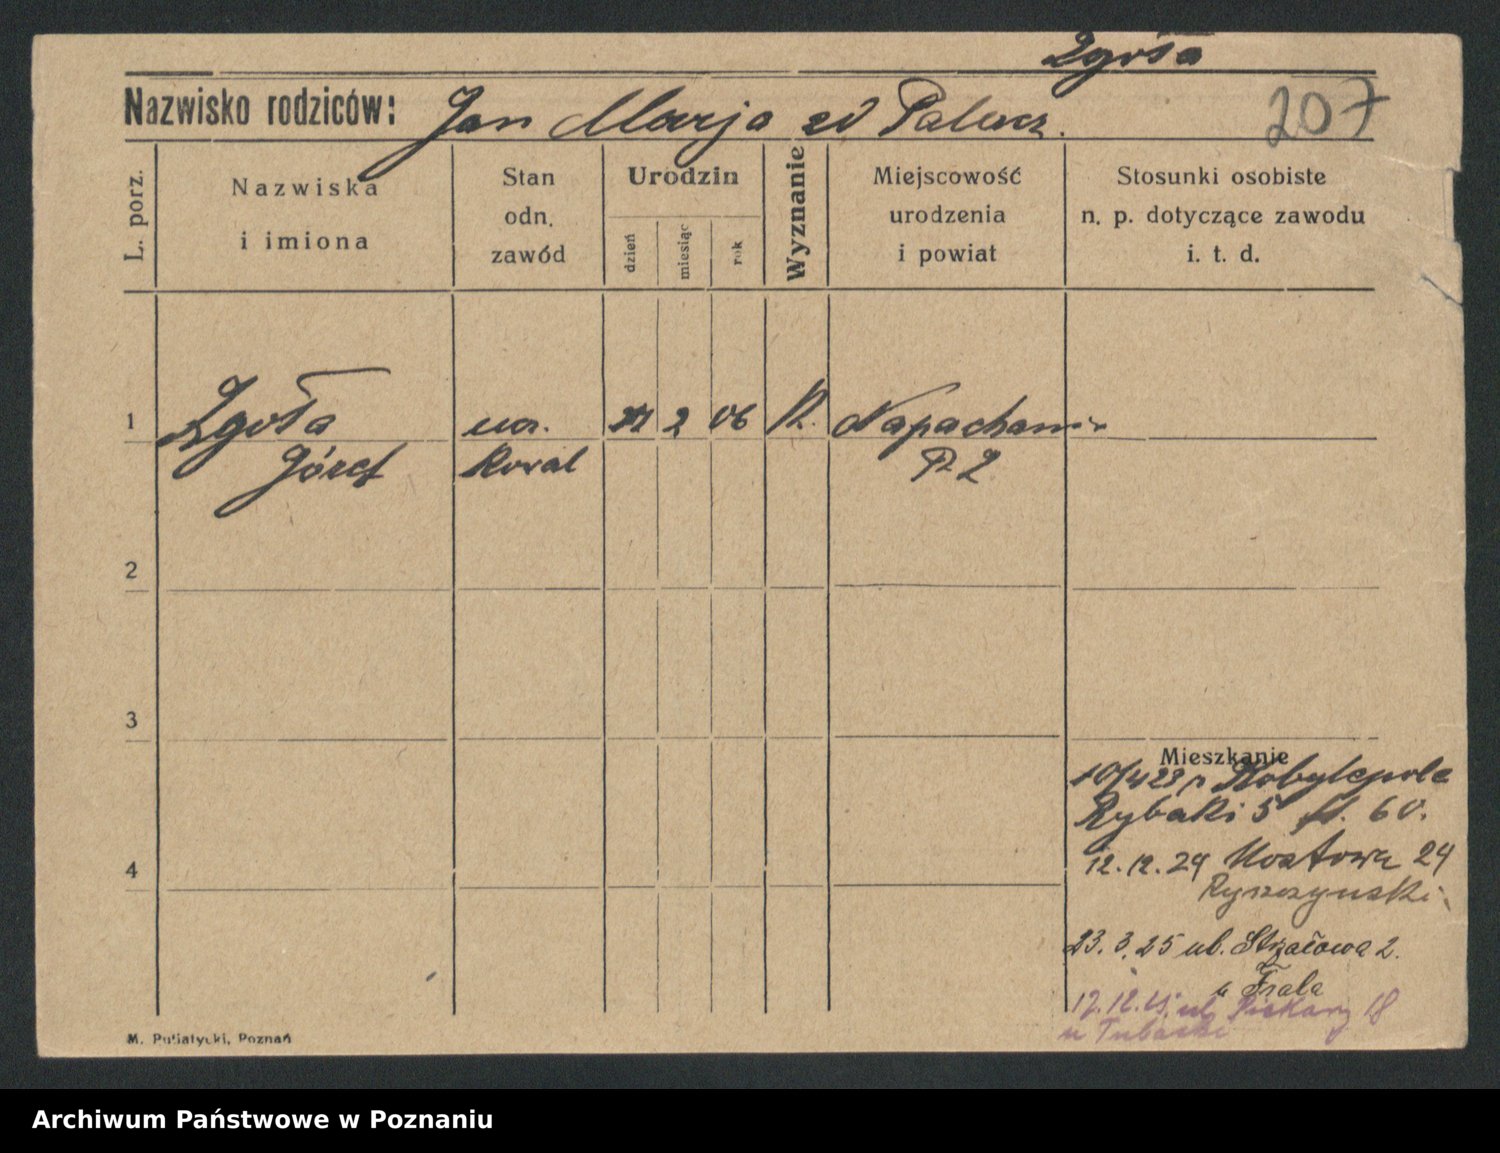 Zgoła
Nazwisko rodziców: Jan Marja zd Palacz.
207
L. porz.
Nazwiska
i imiona
Stan
odn.
zawód
Urodzin
dzień
miesiąc
rok
Wyznanie
Miejscowość
urodzenia
i powiat
Stosunki osobiste
n. p. dotyczące zawodu
i. t. d.
1
Zgoła
Józef
ucz.
Kowal
2 06
Napachanie
Pz
2
3
4
Mieszkanie
10/4 23 Kobylepole
Rybaki 5 60.
12.12.24 Mostowa 24
Ryszczynski
23.3.25 ul. Strzałowa 2.
u Frala
17.12. ul. Piekary 18
u
M. Putiatycki, Poznań
Archiwum Państwowe w Poznaniu